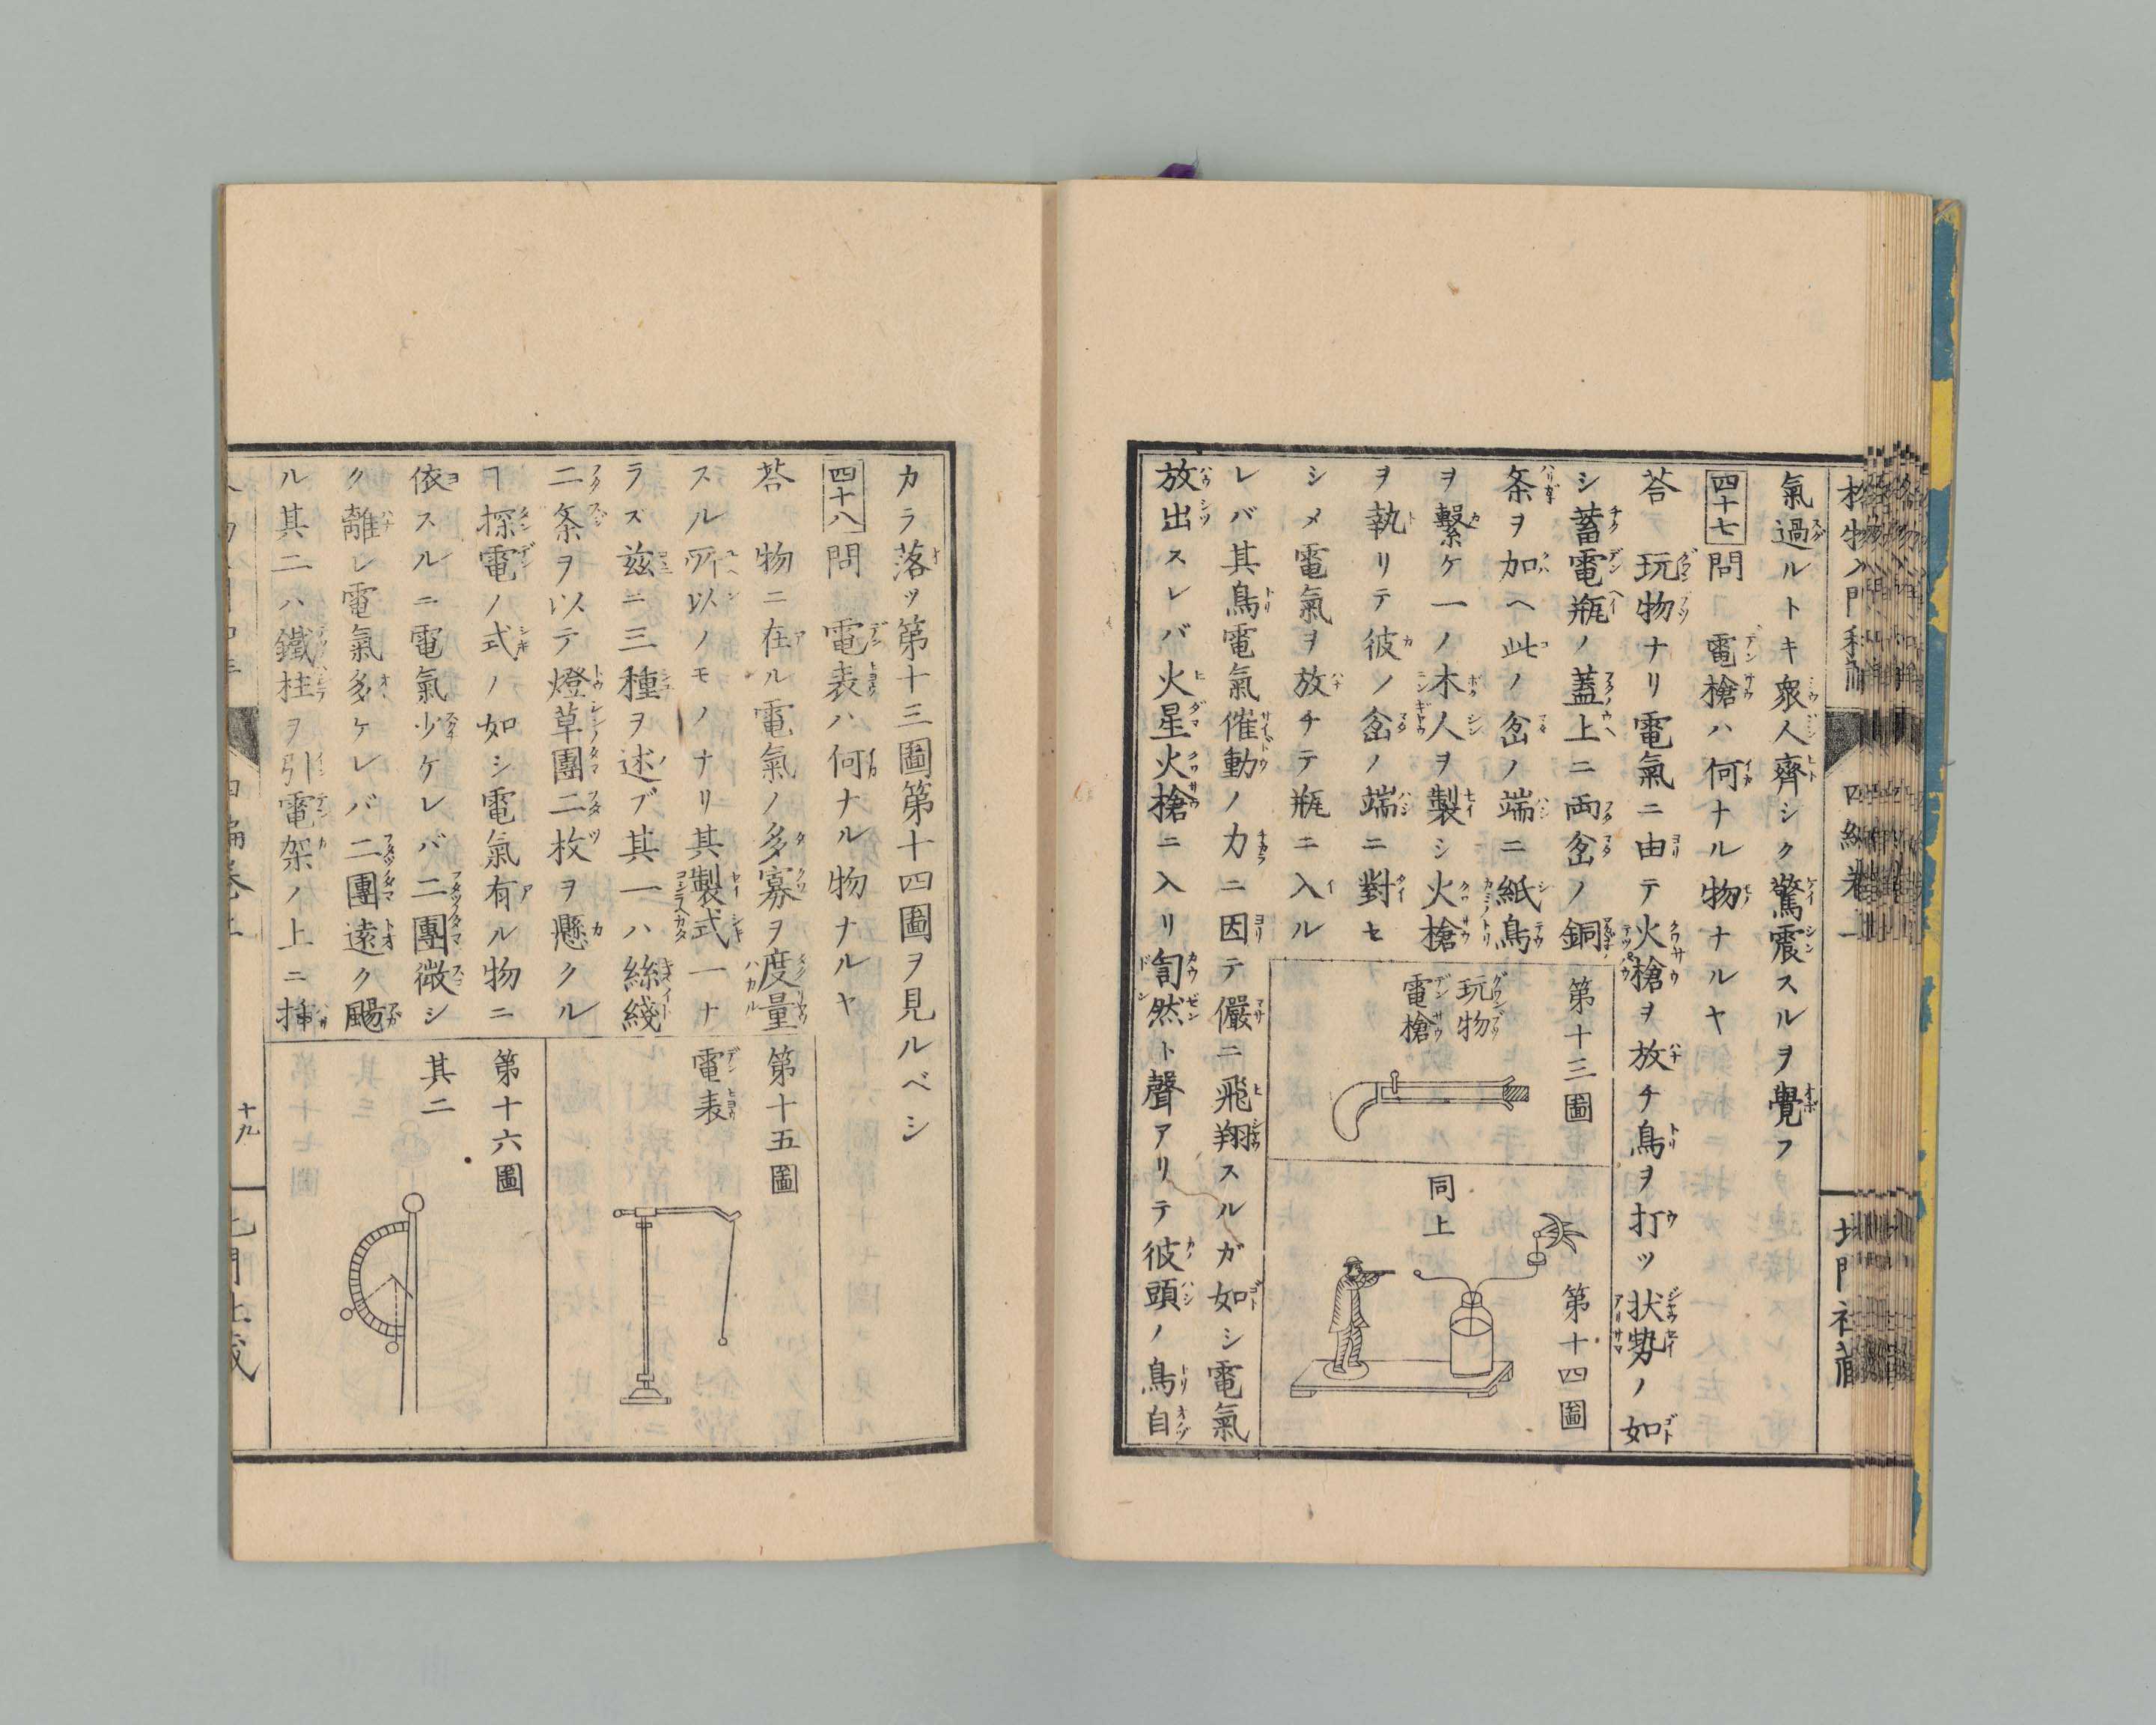 氣過ルトキ衆人齊シク驚震スルヲ覺フ
四十七 問 電槍ハ何ナル物ナルヤ
荅 玩物ナリ電氣ニ由テ火槍ヲ放チ鳥ヲ打ツ状勢ノ如
シ蓄電瓶ノ蓋上ニ両岔ノ銅
条ヲ加ヘ此ノ岔ノ端ニ紙鳥
ヲ繋ケ一ノ木人ヲ製シ火槍
ヲ執リテ彼ノ岔ノ端ニ對セ
シメ電氣ヲ放チテ瓶ニ入ル
レバ其鳥電氣催動ノ力ニ因テ儼ニ飛翔スルガ如シ電氣
放出スレバ火星火槍ニ入リ訇然ト聲アリテ彼頭ノ鳥自
第十三圖
玩物
電槍
第十四圖
同上
カラ落ツ第十三圖第十四圖ヲ見ルベシ
四十八 問 電表ハ何ナル物ナルヤ
荅 物ニ在ル電氣ノ多寡ヲ度量
スル所以ノモノナリ其製式一ナ
ラズ玆ニ三種ヲ述ブ其一ハ絲綫
二条ヲ以テ燈草團二枚ヲ懸クル
ヿ探電ノ式ノ如シ電氣有ル物ニ
依スルニ電氣少ケレバ二團微シ
ク離レ電氣多ケレバ二團遠ク颺
ル其二ハ鐵柱ヲ引電架ノ上ニ挿
第十五圖
電表
第十六圖
其二
十九